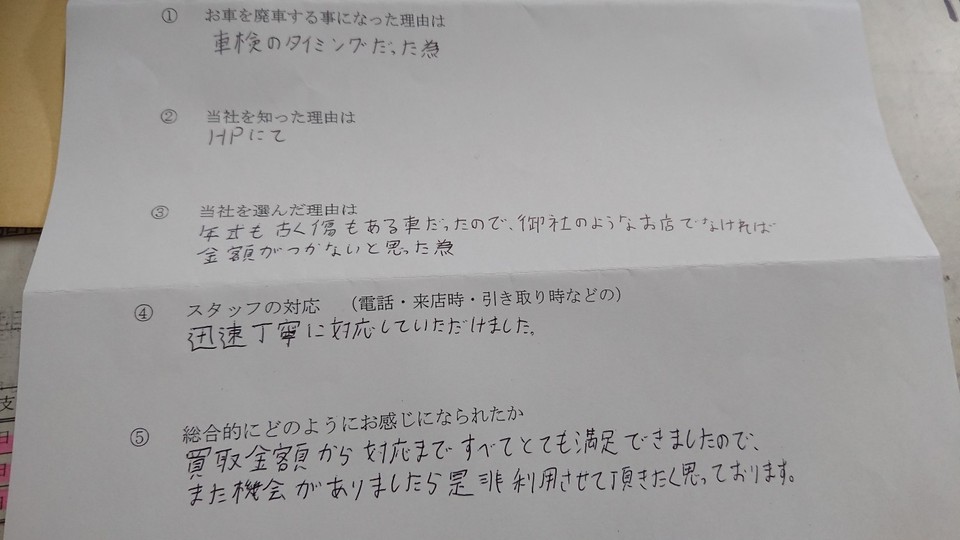 ① お車を廃車する事になった理由は
車検のタイミングだった為
② 当社を知った理由は
HPにて
③ 当社を選んだ理由は
年式も古く傷もある車だったので、御社のようなお店でなければ
金額がつかないと思った為
④ スタッフの対応 （電話・来店時・引き取り時などの）
迅速丁寧に対応していただけました。
⑤ 総合的にどのようにお感じになられたか
買取金額から対応まですべてとても満足できましたので、
また機会がありましたら是非利用させて頂きたく思っております。
支
日